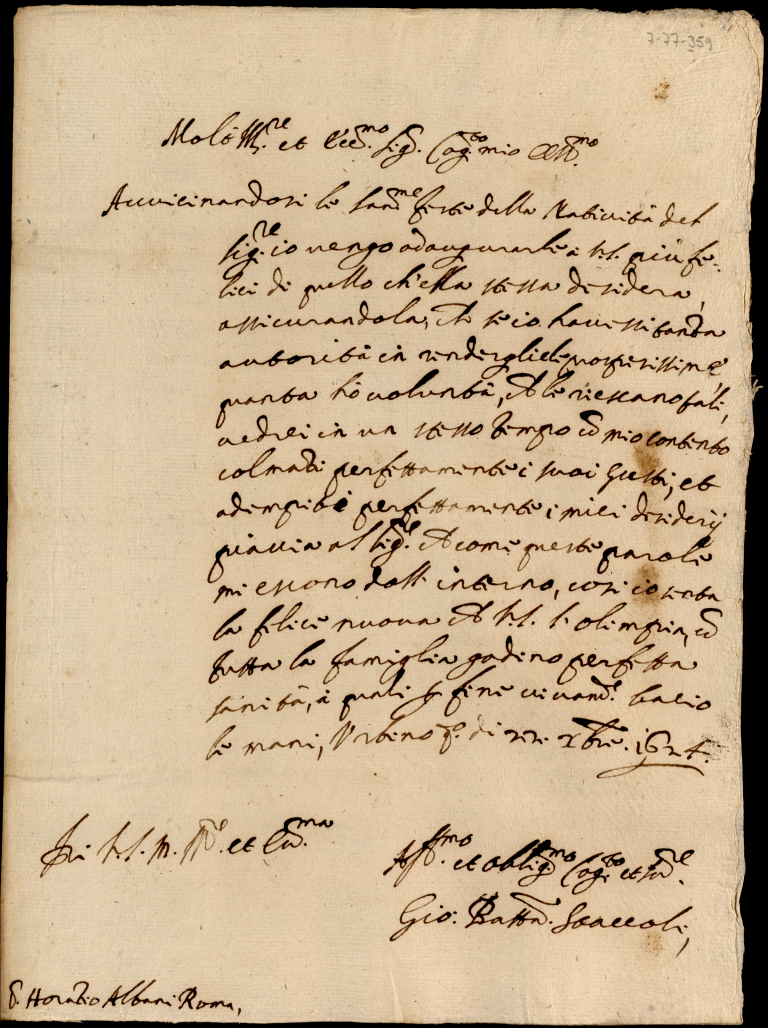 7-77-359
Molt' Ill.re et Ecc.mo Sig.r Cog.to mio Oss.mo
Avvicinandosi le San.me feste della Natività del
Sig.re io vengo ad augurarle à V.S. più fe-
lici di quello ch'ella stessa desidera,
assicurandola, ch se io havessi tanta
autorità in rendergliele prosperissime
quanta hò voluntà, ch le riescano tali,
vedrei in un stesso tempo cō mio contento
colmati perfettamente i suoi gusti, et
adempiti perfettamente i miei desiderij
piaccia al Sig.re ch come queste parole
mi escono dall' interno, così io senta
la felice nuova ch V.S. S. Olimpia, cō
tutta la famiglia godino perfetta
sanità, à quali p fine vivam.e bacio
le mani, Urbino di 22 Xbre. 1624.
Di V.S. M. Ill.re et Ecc.ma
Aff.mo et obblig.mo Cog.to et Ser.re
Gio: Batta. Staccoli,
S. Horatio Albani Roma,